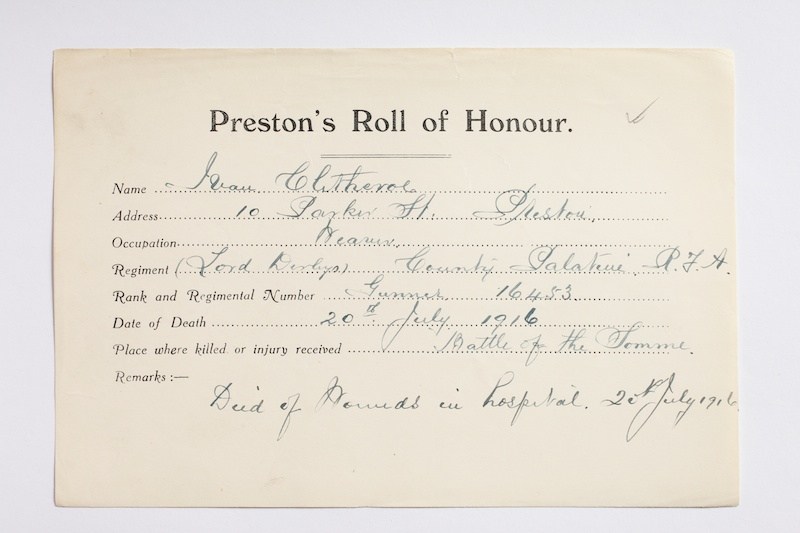 Preston's Roll of Honour.
Name Ivan Clitheroe
Address 10 Parker St. Preston.
Occupation Weaver.
Regiment (Lord Derbys) County Palatine R.F.A.
Rank and Regimental Number Gunner 16453
Date of Death 20th July 1916
Place where killed or injury received Battle of the Somme.
Remarks :—
Died of Wounds in hospital. 20th July 1916